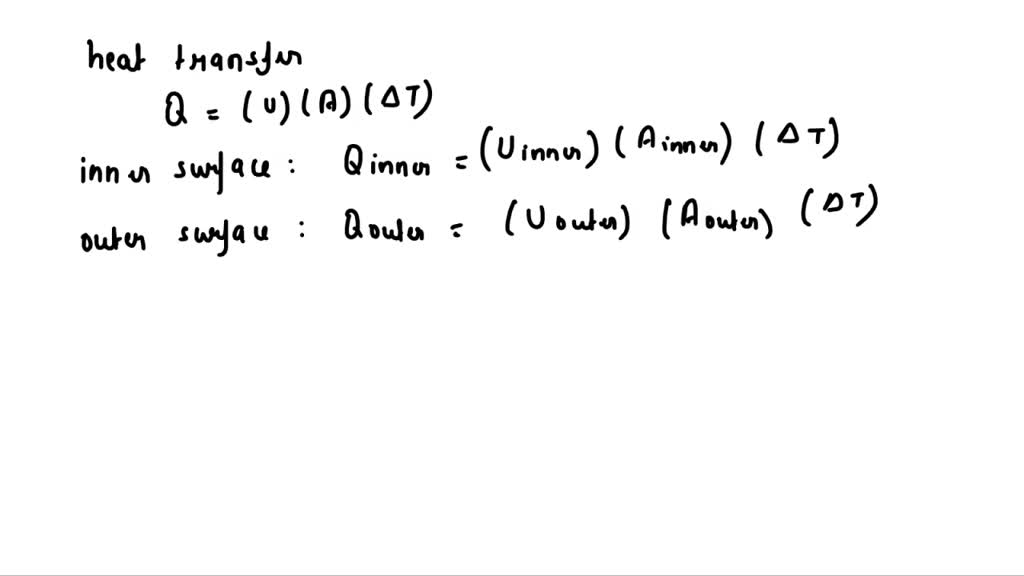 heat transfer
Q = (U) (A) (ΔT)
inner surface : Qinner = (Uinner) (Ainner) (ΔT)
outer surface : Qouter = (Uouter) (Aouter) (ΔT)